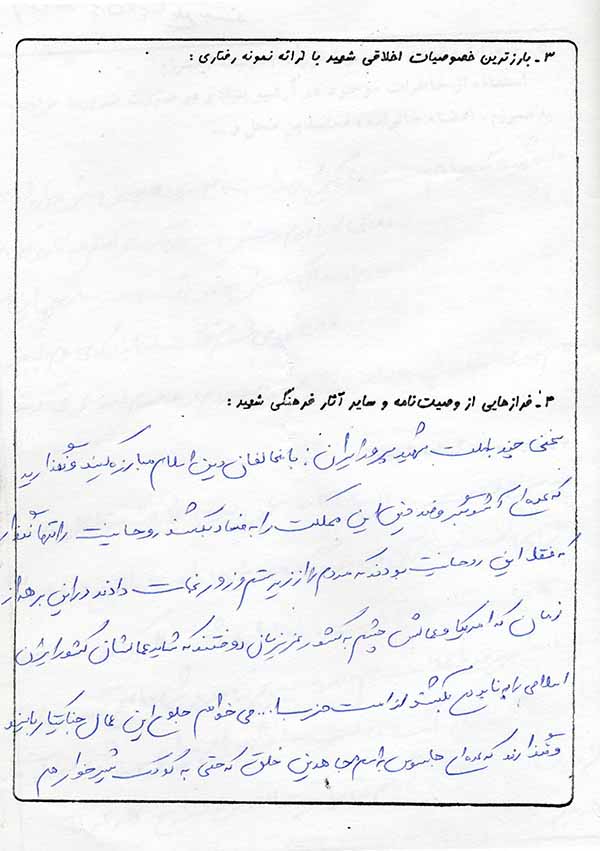 ۳ـ بارزترین خصوصیات اخلاقی شهید با ارائه نمونه رفتاری :
۴ـ فرازهایی از وصیت‌نامه و سایر آثار فرهنگی شهید :
سخنی چند با ملت شهید پرور ایران : با مخالفان دین اسلام مبارزه کنید و نگذارید
که عده‌ای آشوبگر و ضد دین این مملکت را به فساد بکشند روحانیت را تنها نگذارید
که فقط این روحانیت بودند که مردم را از زیر ستم و زور نجات دادند در این برهه از
زمان که امریکا و عمالش چشم به کشور عزیزمان دوختند که شاید عمالشان کشور ایران
اسلامی را به نابودی بکشند لذا از امت حزب ا... می‌خواهم جلوی این عمال جنایتکار را بگیرند
و نگذارند که عده‌ای جاسوس به اسم مجاهدین خلق که حتی به کودک شیرخوار هم